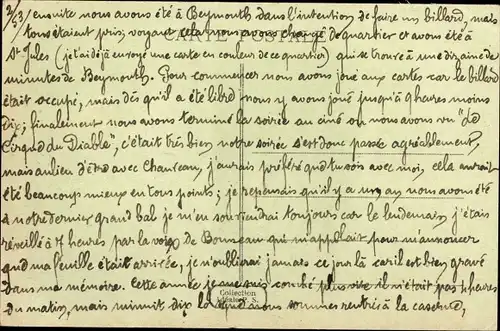 2/53/ ensuite nous avons été à Beymouth dans l'intention de faire un billard, mais
tous étaient pris, voyant cela nous avons changé de quartier et avons été à
St Jules (je t'ai déjà envoyé une carte en couleur de ce quartier) qui se trouve à une dizaine de
minutes de Beymouth. Pour commencer nous avons joué aux cartes car le billard
était occupé, mais dès qu'il a été libre nous y avons joué jusqu'à 9 heures moins
dix; finalement nous avons terminé la soirée au ciné où nous avons vu "Le
du Diable", c'était très bien, notre soirée s'est donc passée agréablement,
mais au lieu d'être avec Chauveau, j'aurais préféré que tu sois avec moi, cela aurait
été beaucoup mieux en tous points; je repensais qu'il y a un an nous avons été
à notre dernier grand bal je m'en souviendrai toujours car le lendemain, j'étais
réveillé à 7 heures par la voix de Bousseau qui m'appelait pour m'annoncer
que ma feuille était arrivée, je n'oublierai jamais ce jour là car il est bien gravé
dans ma mémoire. Cette année je me suis couché plus tôt il n'était pas 7 heures
du matin, mais minuit dix lorsque nous sommes rentrés à la caserne,
CARTE POSTALE
Collection
Idéale P. S.